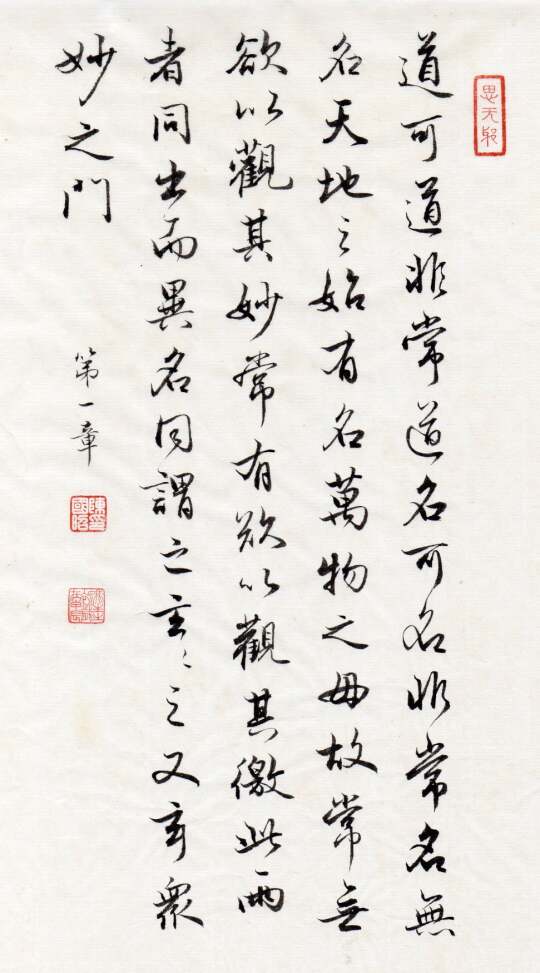 思无邪
道可道非常道名可名非常名無
名天地之始有名萬物之母故常無
欲以觀其妙常有欲以觀其徼此兩
者同出而異名同謂之玄〻之又玄眾
妙之門
第一章